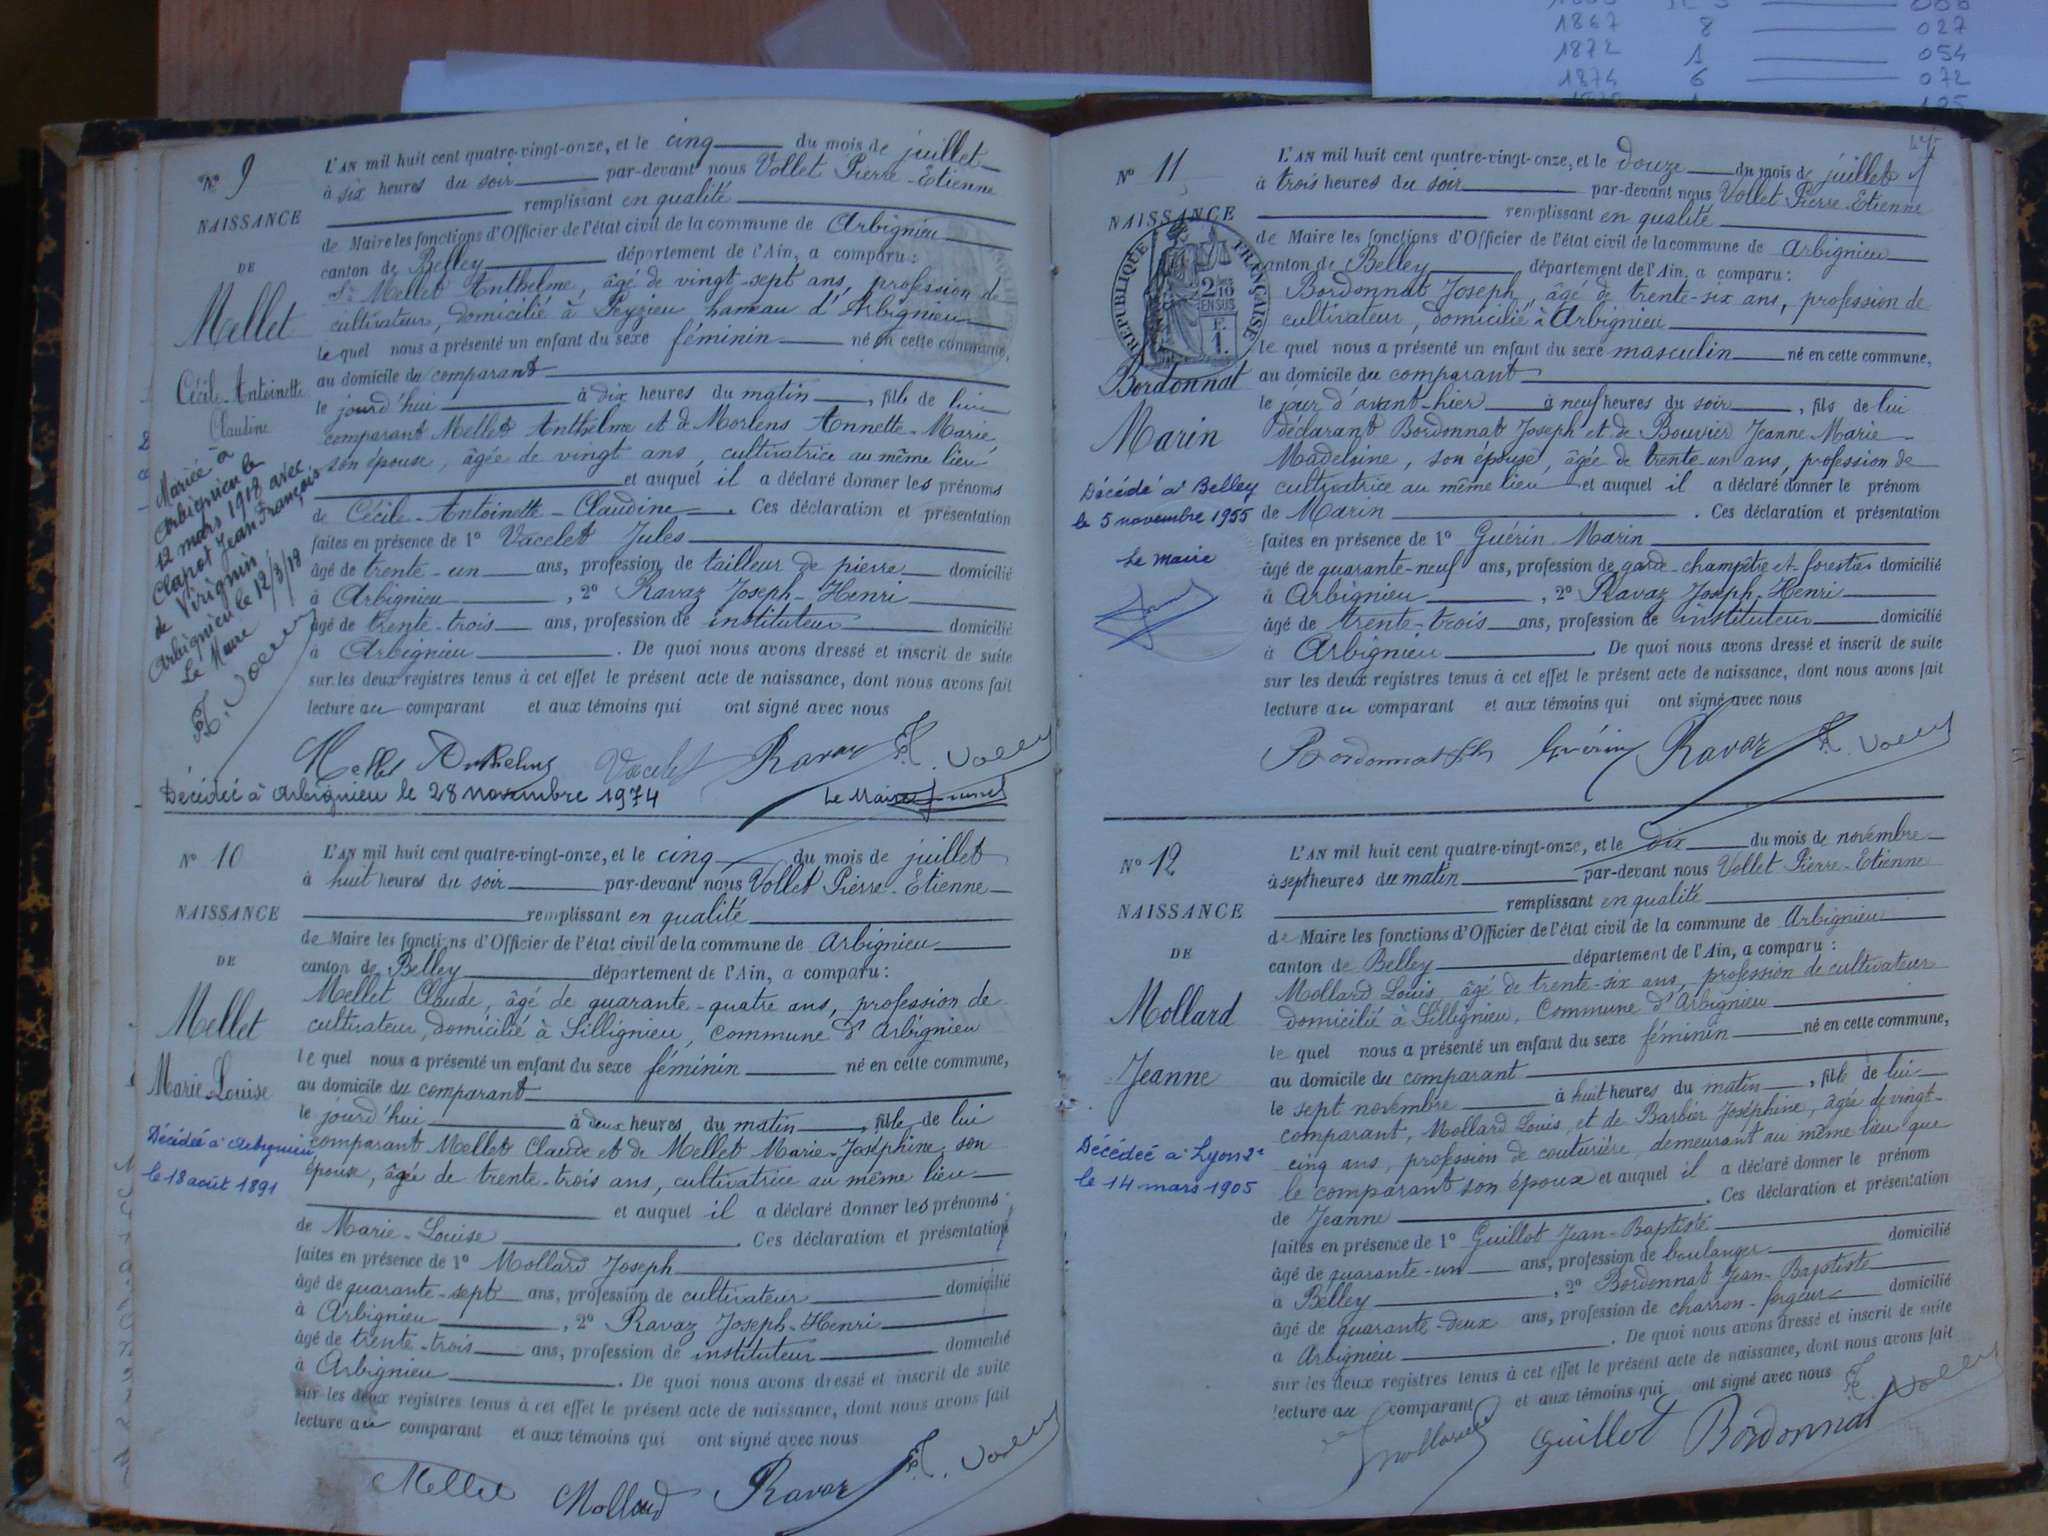 1867 8 027
1872 1 054
1874 6 072
N° 9
NAISSANCE
DE
Mellet
Cécile-Antoinette
Claudine
Mariée à
Arbignieu le
12 mars 1918 avec
Clapot Jean François
de Virignin
Arbignieu le 12/3/18
Le Maire
L'AN mil huit cent quatre-vingt-onze, et le cinq du mois de juillet
à six heures du soir par-devant nous Vollet Pierre-Etienne
remplissant en qualité
de Maire les fonctions d'Officier de l'état civil de la commune de Arbignieu
canton de Belley département de l'Ain, a comparu :
Sr Mellet Anthelme, âgé de vingt-sept ans, profession de
cultivateur, domicilié à Peyzieu, hameau d'Arbignieu
le quel nous a présenté un enfant du sexe féminin né en cette commune,
au domicile du comparant
le jourd'hui à dix heures du matin, fille de lui
comparant Mellet Anthelme et de Mortens Annette-Marie,
son épouse, âgée de vingt ans, cultivatrice au même lieu
et auquel il a déclaré donner les prénoms
de Cécile-Antoinette-Claudine. Ces déclaration et présentation
faites en présence de 1° Vacelet Jules
âgé de trente-un ans, profession de tailleur de pierre domicilié
à Arbignieu, 2° Ravaz Joseph-Henri
âgé de trente-trois ans, profession de instituteur domicilié
à Arbignieu. De quoi nous avons dressé et inscrit de suite
sur les deux registres tenus à cet effet le présent acte de naissance, dont nous avons fait
lecture au comparant et aux témoins qui ont signé avec nous
Mellet Anthelme Vacelet Ravaz
Décédée à Arbignieu le 28 novembre 1974 Le Maire
N° 10
NAISSANCE
DE
Mellet
Marie-Louise
Décédée à Arbignieu
le 18 août 1891
L'AN mil huit cent quatre-vingt-onze, et le cinq du mois de juillet
à huit heures du soir par-devant nous Vollet Pierre-Etienne
remplissant en qualité
de Maire les fonctions d'Officier de l'état civil de la commune de Arbignieu
canton de Belley département de l'Ain, a comparu :
Mellet Claude, âgé de quarante-quatre ans, profession de
cultivateur, domicilié à Sillignieu, commune d'Arbignieu
le quel nous a présenté un enfant du sexe féminin né en cette commune,
au domicile du comparant
le jourd'hui à deux heures du matin, fille de lui
comparant Mellet Claude et de Mellet Marie-Joséphine, son
épouse, âgée de trente-trois ans, cultivatrice au même lieu
et auquel il a déclaré donner les prénoms
de Marie-Louise. Ces déclaration et présentation
faites en présence de 1° Mollard Joseph
âgé de quarante-sept ans, profession de cultivateur domicilié
à Arbignieu, 2° Ravaz Joseph-Henri
âgé de trente-trois ans, profession de instituteur domicilié
à Arbignieu. De quoi nous avons dressé et inscrit de suite
sur les deux registres tenus à cet effet le présent acte de naissance, dont nous avons fait
lecture au comparant et aux témoins qui ont signé avec nous
Mellet Mollard Ravaz
N° 11
NAISSANCE
RÉPUBLIQUE FRANÇAISE
2/10
EN SUS
1F.
Bordonnat
Marin
Décédé à Belley
le 5 novembre 1955
Le maire
L'AN mil huit cent quatre-vingt-onze, et le douze du mois de juillet
à trois heures du soir par-devant nous Vollet Pierre-Etienne
remplissant en qualité
de Maire les fonctions d'Officier de l'état civil de la commune de Arbignieu
canton de Belley département de l'Ain, a comparu :
Bordonnat Joseph, âgé de trente-six ans, profession de
cultivateur, domicilié à Arbignieu
le quel nous a présenté un enfant du sexe masculin né en cette commune,
au domicile du comparant
le jour d'avant-hier à neuf heures du soir, fils de lui
déclarant Bordonnat Joseph et de Bouvier Jeanne Marie
Madeleine, son épouse, âgée de trente-un ans, profession de
cultivatrice au même lieu et auquel il a déclaré donner le prénom
de Marin. Ces déclaration et présentation
faites en présence de 1° Guérin Marin
âgé de quarante-neuf ans, profession de garde-champêtre et forestier domicilié
à Arbignieu, 2° Ravaz Joseph-Henri
âgé de trente-trois ans, profession de instituteur domicilié
à Arbignieu. De quoi nous avons dressé et inscrit de suite
sur les deux registres tenus à cet effet le présent acte de naissance, dont nous avons fait
lecture au comparant et aux témoins qui ont signé avec nous
Bordonnat Guérin Ravaz
N° 12
NAISSANCE
DE
Mollard
Jeanne
Décédée à Lyon 2e
le 14 mars 1905
L'AN mil huit cent quatre-vingt-onze, et le dix du mois de novembre
à sept heures du matin par-devant nous Vollet Pierre-Etienne
remplissant en qualité
de Maire les fonctions d'Officier de l'état civil de la commune de Arbignieu
canton de Belley département de l'Ain, a comparu :
Mollard Louis, âgé de trente-six ans, profession de cultivateur
domicilié à Sillignieu, Commune d'Arbignieu
le quel nous a présenté un enfant du sexe féminin né en cette commune,
au domicile du comparant
le sept novembre à huit heures du matin, fille de lui
comparant, Mollard Louis, et de Barbier Joséphine, âgée de vingt-
cinq ans, profession de couturière, demeurant au même lieu que
le comparant son époux et auquel il a déclaré donner le prénom
de Jeanne. Ces déclaration et présentation
faites en présence de 1° Guillot Jean-Baptiste
âgé de quarante-un ans, profession de boulanger domicilié
à Belley, 2° Bordonnat Jean-Baptiste
âgé de quarante-deux ans, profession de charron-forgeur domicilié
à Arbignieu. De quoi nous avons dressé et inscrit de suite
sur les deux registres tenus à cet effet le présent acte de naissance, dont nous avons fait
lecture au comparant et aux témoins qui ont signé avec nous
Mollard Guillot Bordonnat